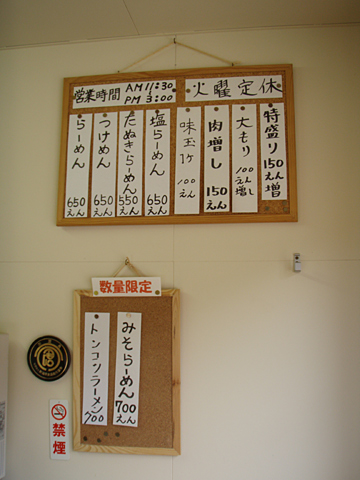 営業時間 AM 11:30
PM 3:00
火曜定休
特盛り 150えん増
大もり 100えん増し
肉増し 150えん
味玉1ヶ 100えん
塩らーめん 650えん
たぬきらーめん 550えん
つけめん 650えん
らーめん 650えん
数量限定
みそらーめん 700えん
トンコツラーメン 700
禁煙